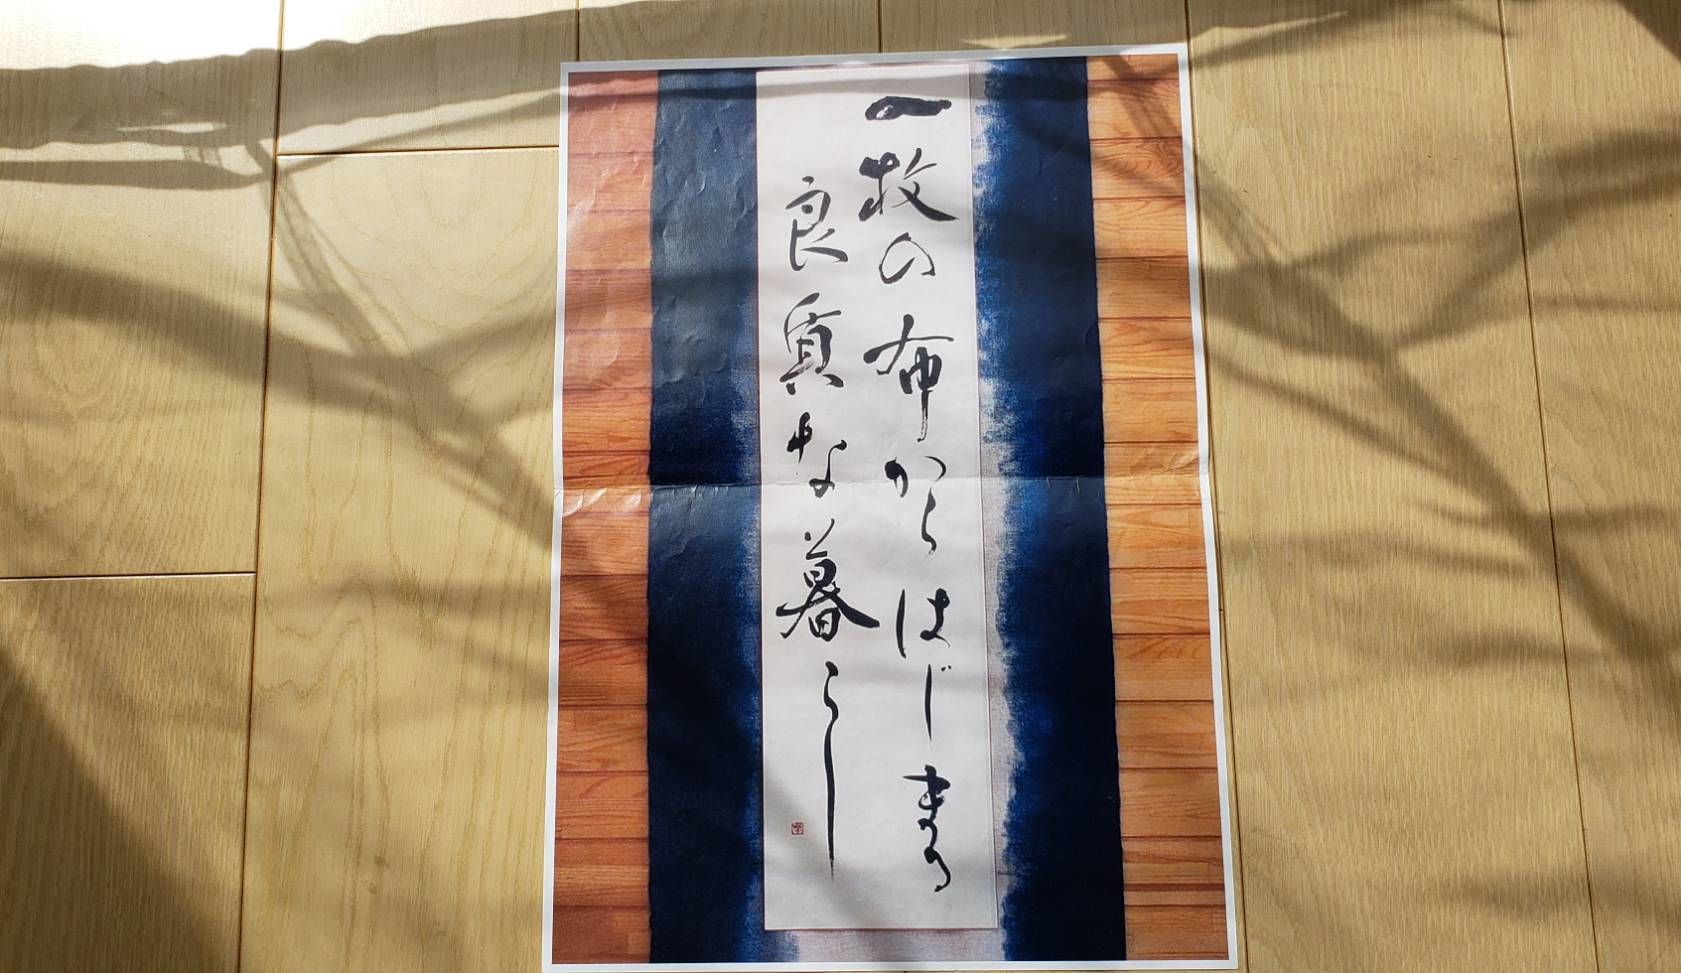 一枚の布からはじまる
良質な暮らし